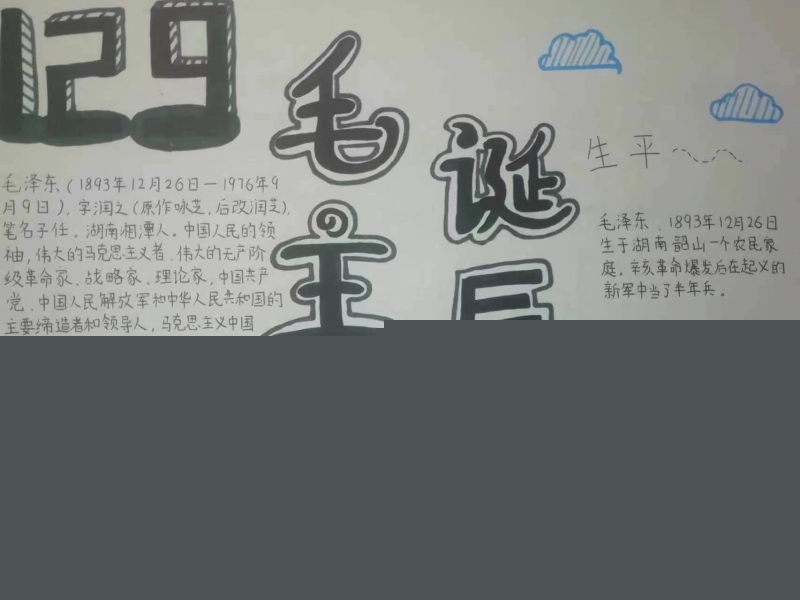 129
毛
主
诞
毛泽东(1893年12月26日—1976年9
月9日),字润之(原作咏芝,后改润芝),
笔名子任。湖南湘潭人。中国人民的领
袖,伟大的马克思主义者、伟大的无产阶
级革命家、战略家、理论家,中国共产
党、中国人民解放军和中华人民共和国的
主要缔造者和领导人,马克思主义中国
生平
毛泽东、1893年12月26日
生于湖南韶山一个农民家
庭。辛亥革命爆发后在起义的
新军中当了半年兵。